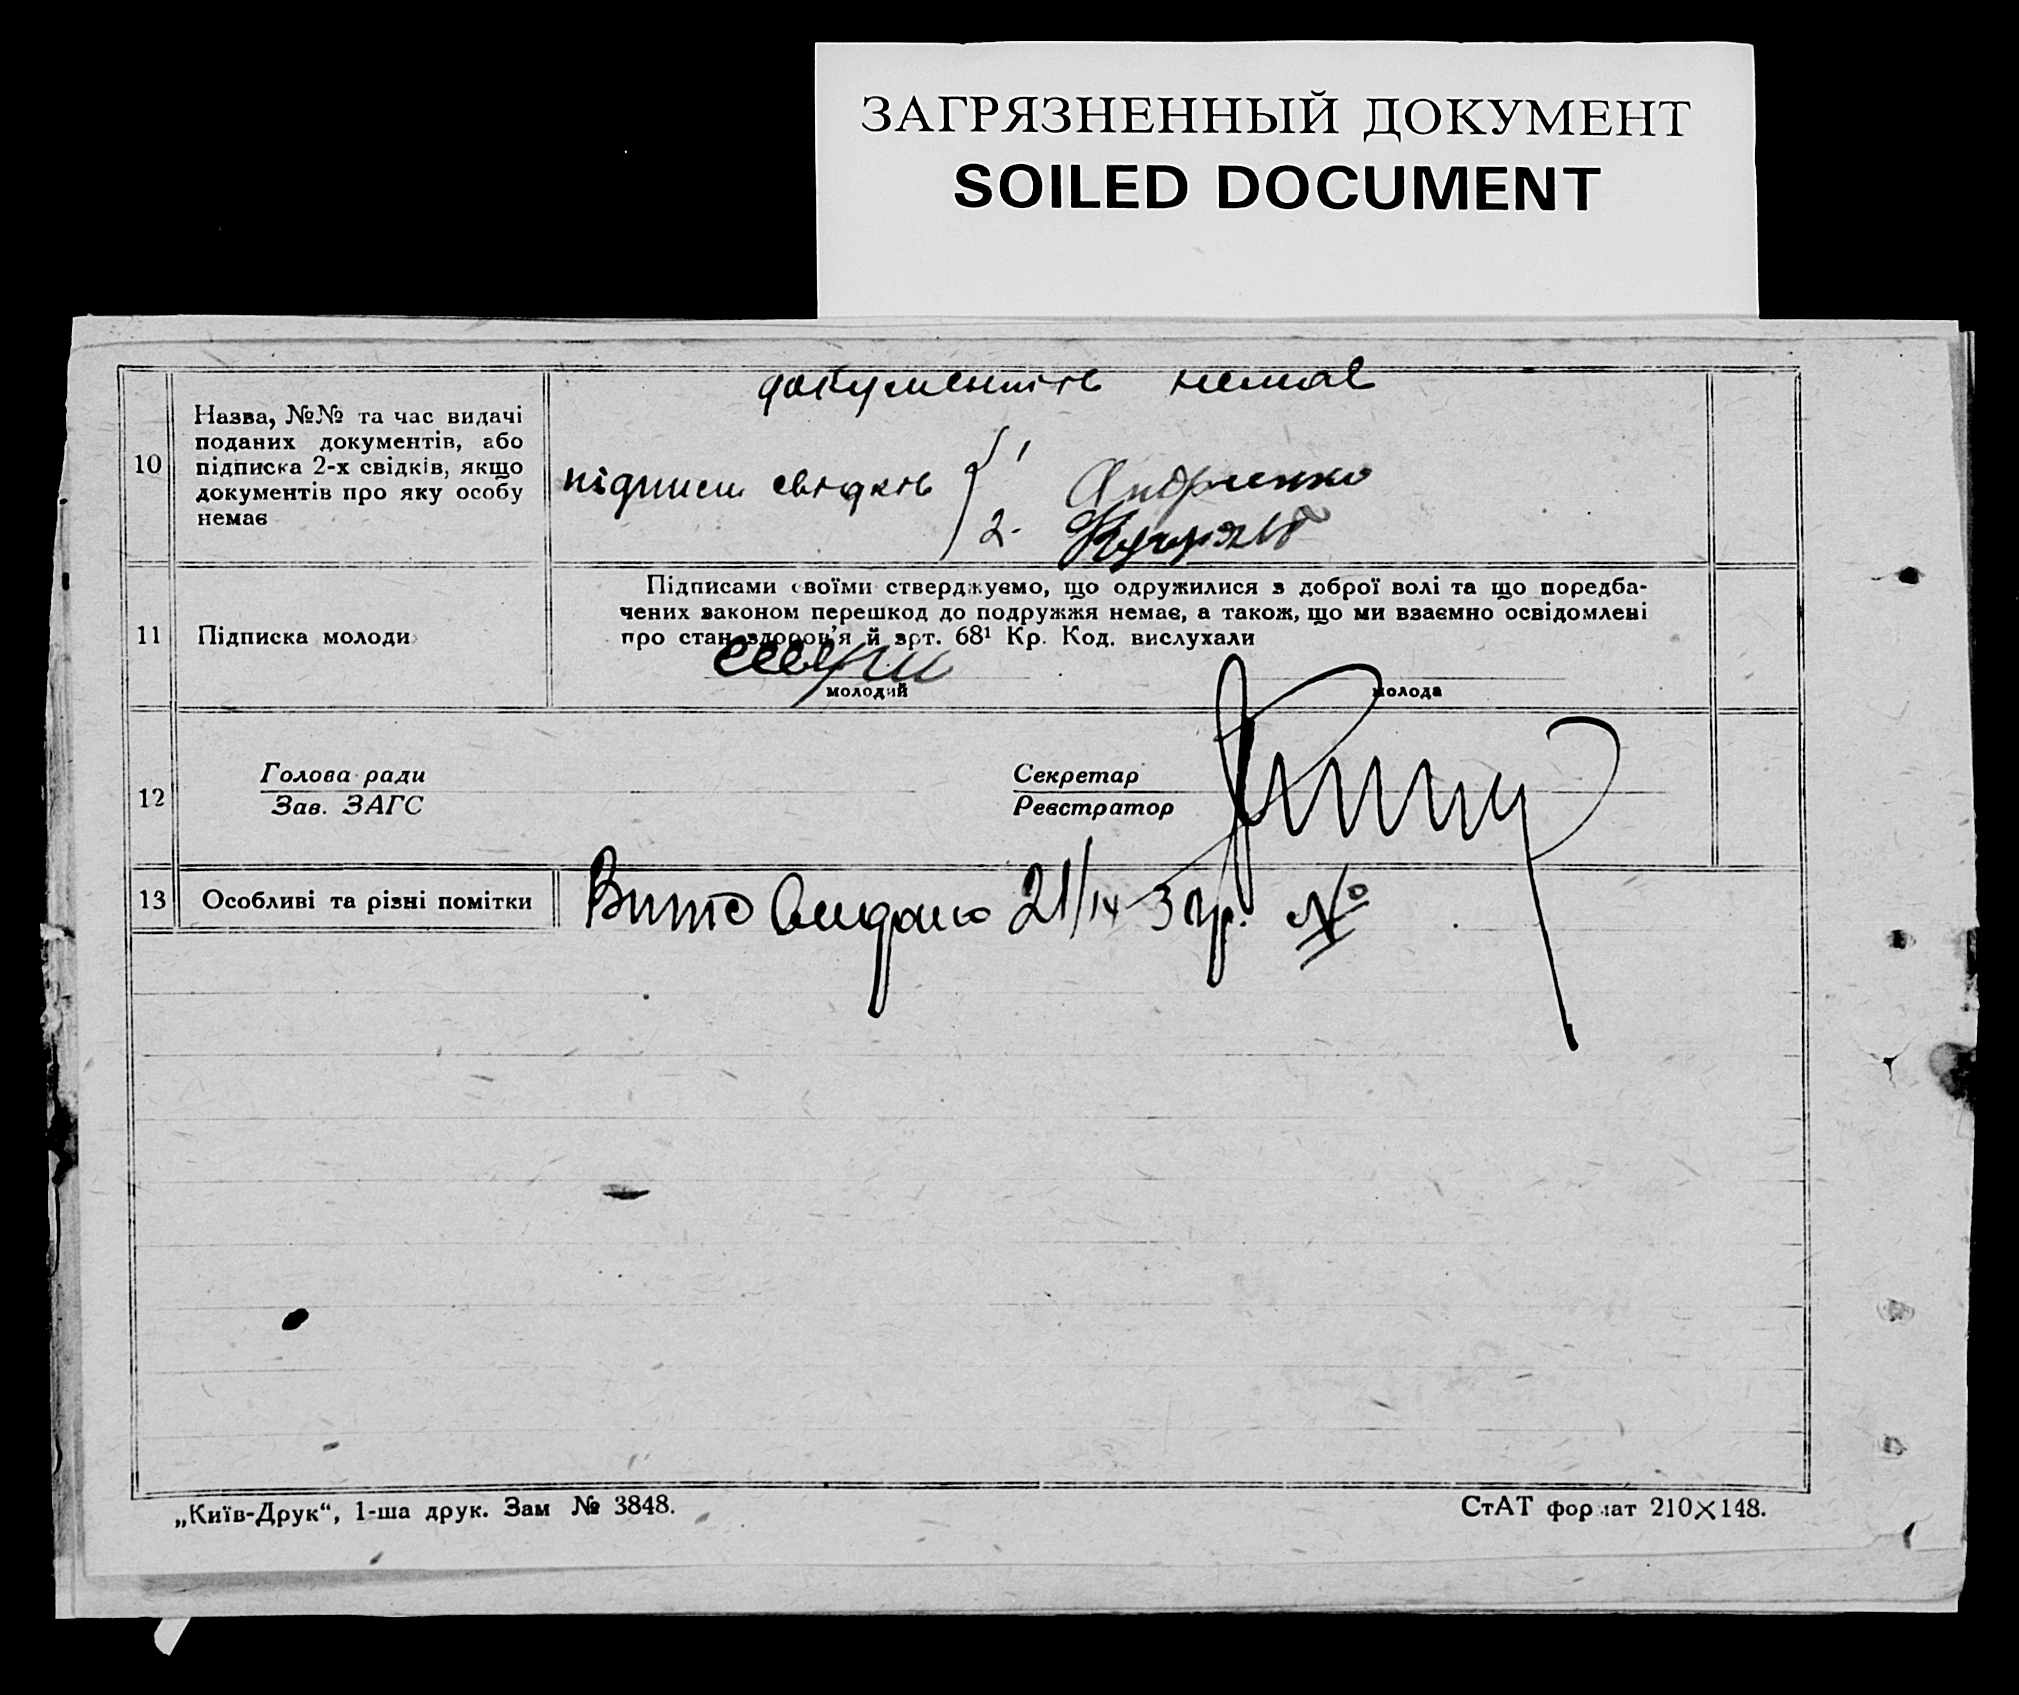 ЗАГРЯЗНЕННЫЙ ДОКУМЕНТ
SOILED DOCUMENT
10
Назва, №№ та час видачі
поданих документів, або
підписка 2-х свідків, якщо
документів про яку особу
немає
документів немає
підписи свідків
1
Андриенко
2-
11
Підписка молоди
Підписами своїми стверджуємо, що одружилися з доброї волі та що передба-
чених законом перешкод до подружжя немає, а також, що ми взаємно освідомлені
про стан здоров'я й арт. 68¹ Кр. Код. вислухали
молодий
молода
12
Голова ради
Зав. ЗАГС
Секретар
Реєстратор
13
Особливі та різні помітки
Видано 21/IX 3 №
„Київ-Друк“, 1-ша друк. Зам № 3848.
СтАТ формат 210×148.